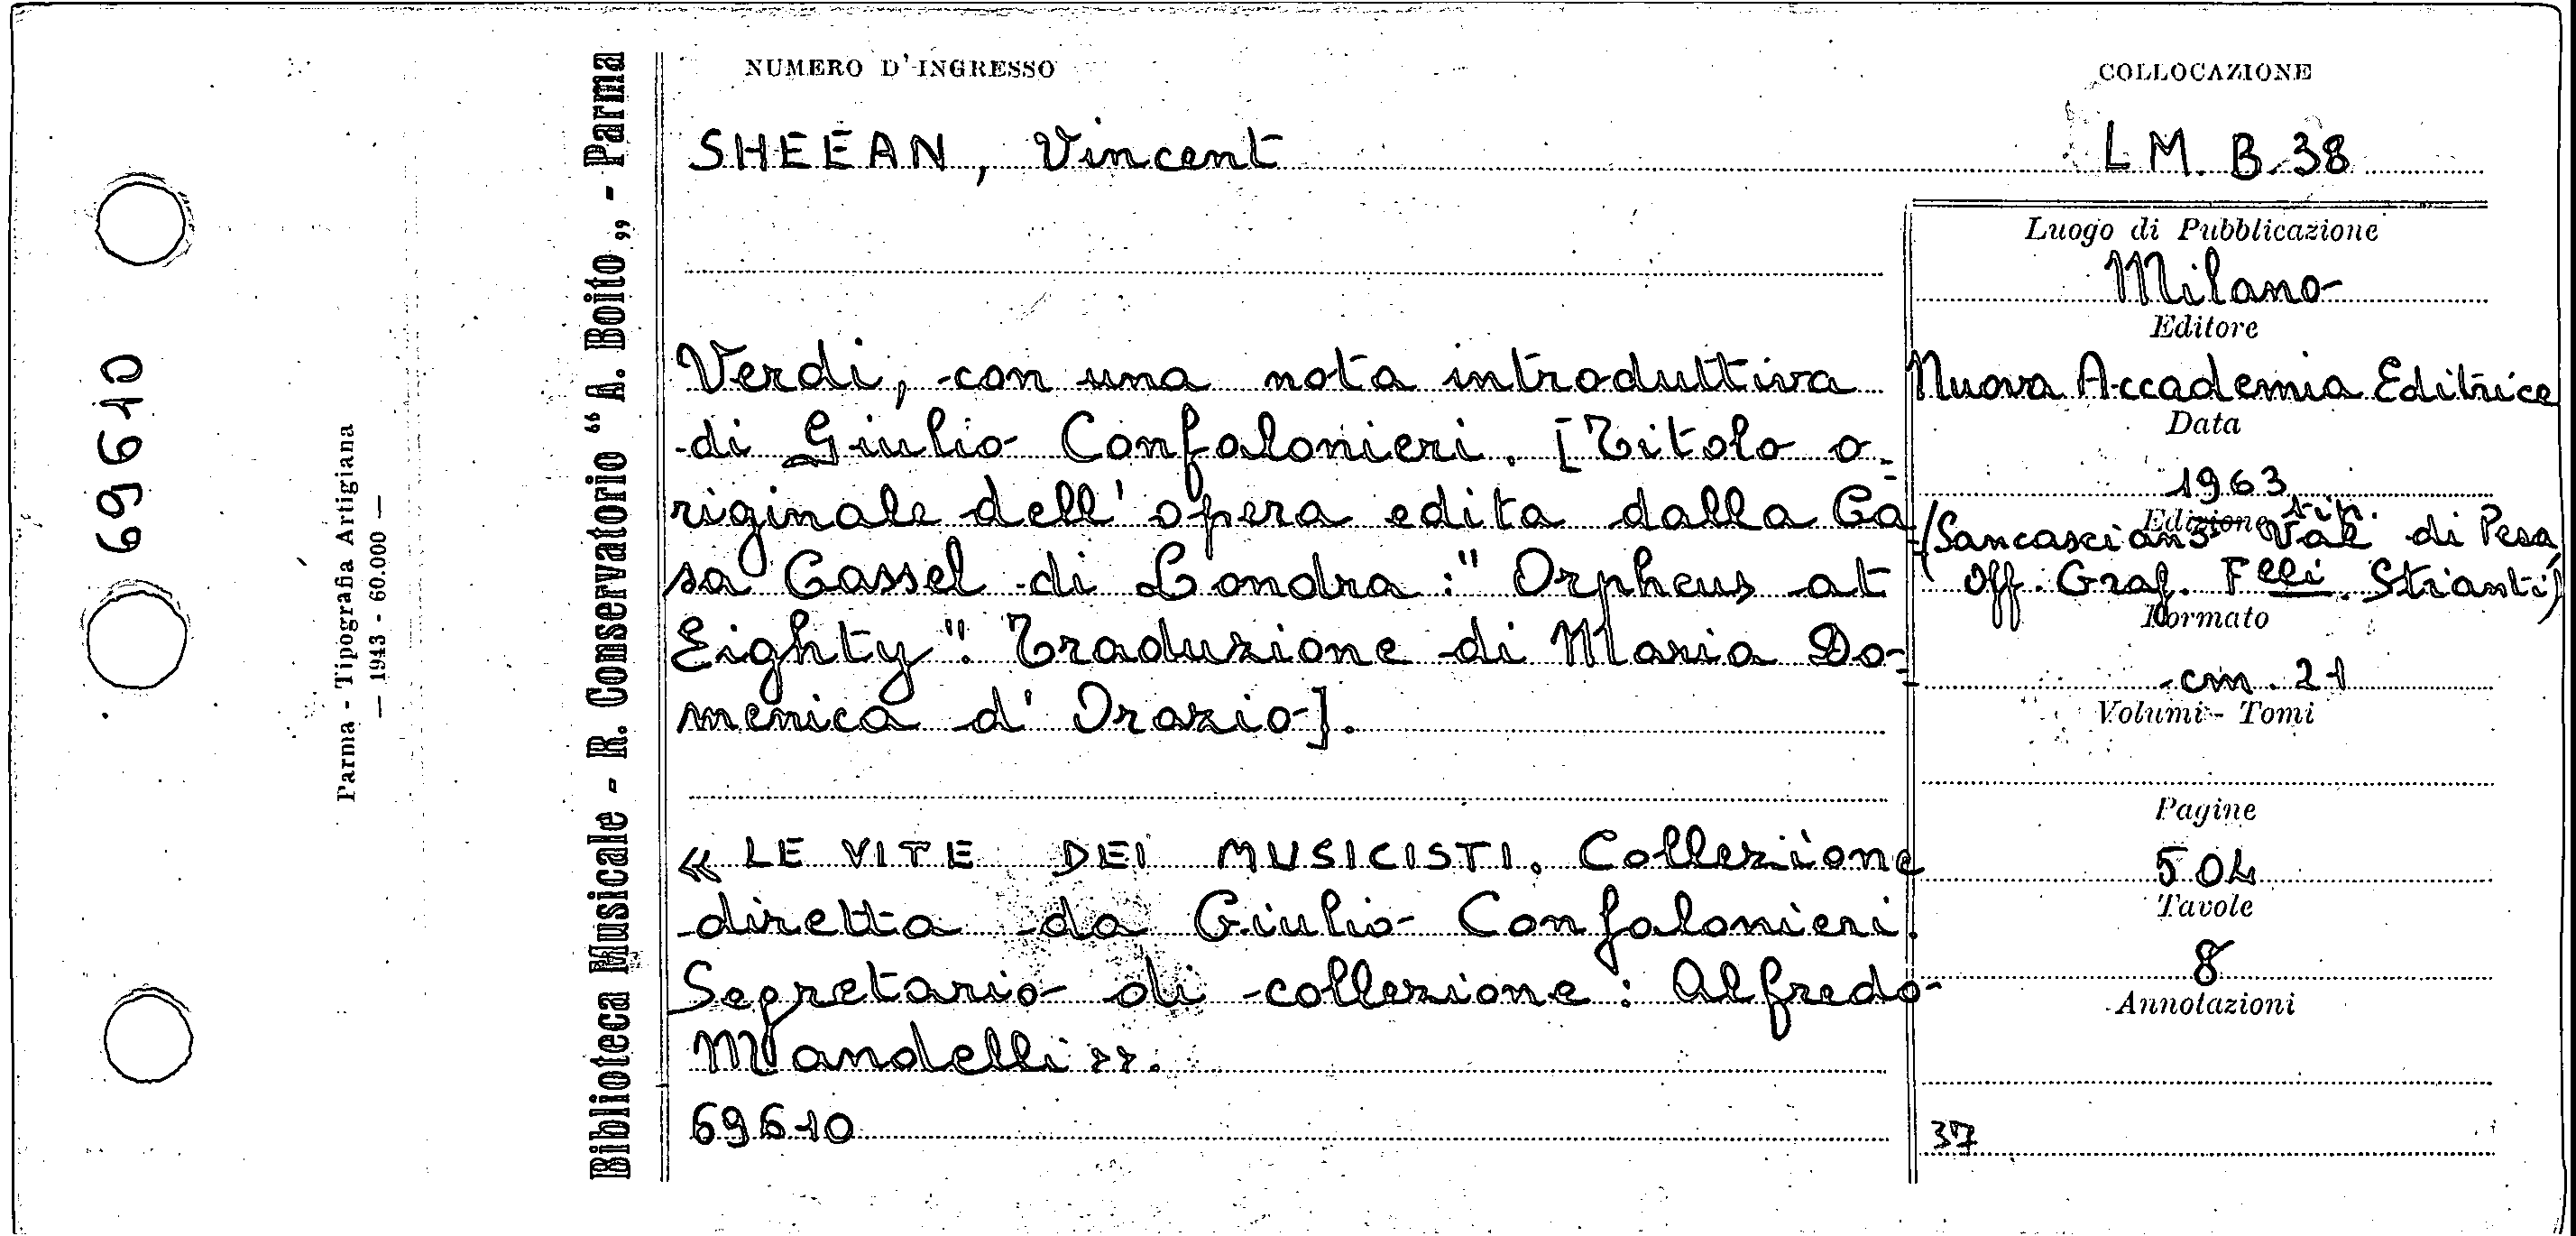 69610
Parma - Tipografia Artigiana
— 1943 - 60.000 —
Biblioteca Musicale - R. Conservatorio “A. Boito„ - Parma
NUMERO D'INGRESSO
COLLOCAZIONE
SHEEAN, Vincent
L M. B. 38
Verdi, con una nota introduttiva
di Giulio Confalonieri. [Titolo o-
riginale dell' opera edita dalla Ca-
sa Cassel di Londra: "Orpheus at
Eighty". Traduzione di Maria Do-
menica d' Orazio].
« LE VITE DEI MUSICISTI. Collezione
diretta da Giulio Confalonieri.
Segretario di collezione: Alfredo
Mandelli ».
69610
Luogo di Pubblicazione
Milano
Editore
Nuova Accademia Editrice
Data
1963
Edizione
(Sancasciano Val di Pesa
Off. Graf. F.lli Stianti)
Formato
cm. 21
Volumi - Tomi
Pagine
504
Tavole
8
Annotazioni
37